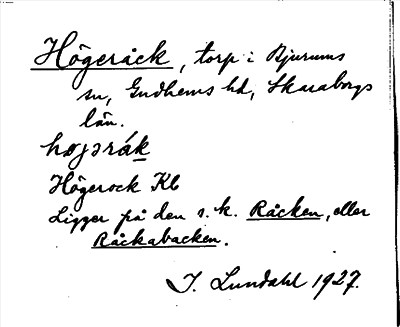 Högeråck, torp i Bjurums
sn, Gudhems hd, Skaraborgs
län.
högəråk
Högerock Kb
Ligger på den s. k. Råcken, eller
Råckabacken.
I. Lundahl 1927.